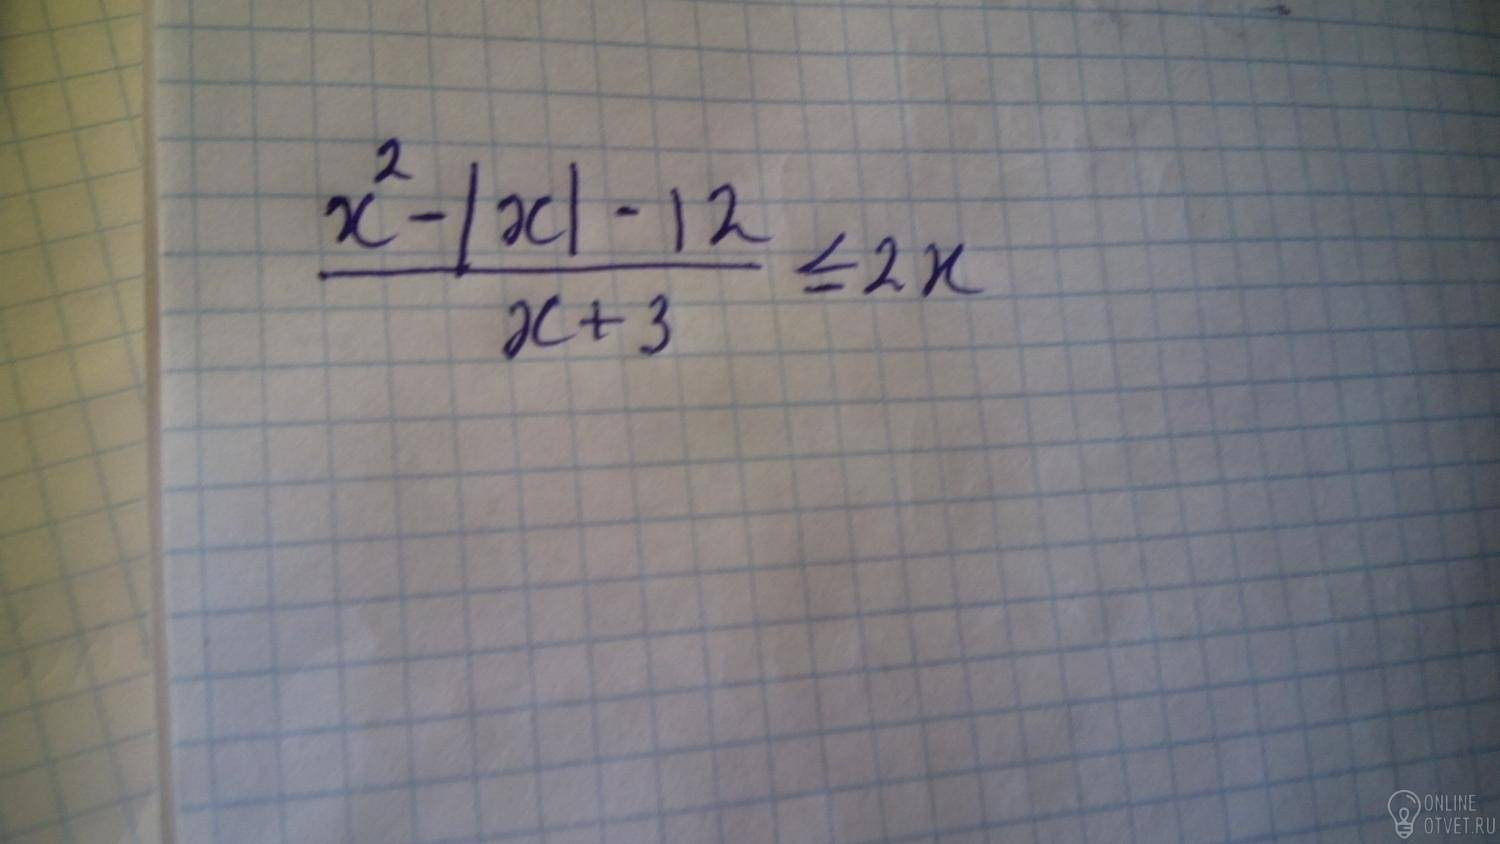 x² - |x| - 12
x + 3
≤ 2x
ONLINE
OTVET.RU